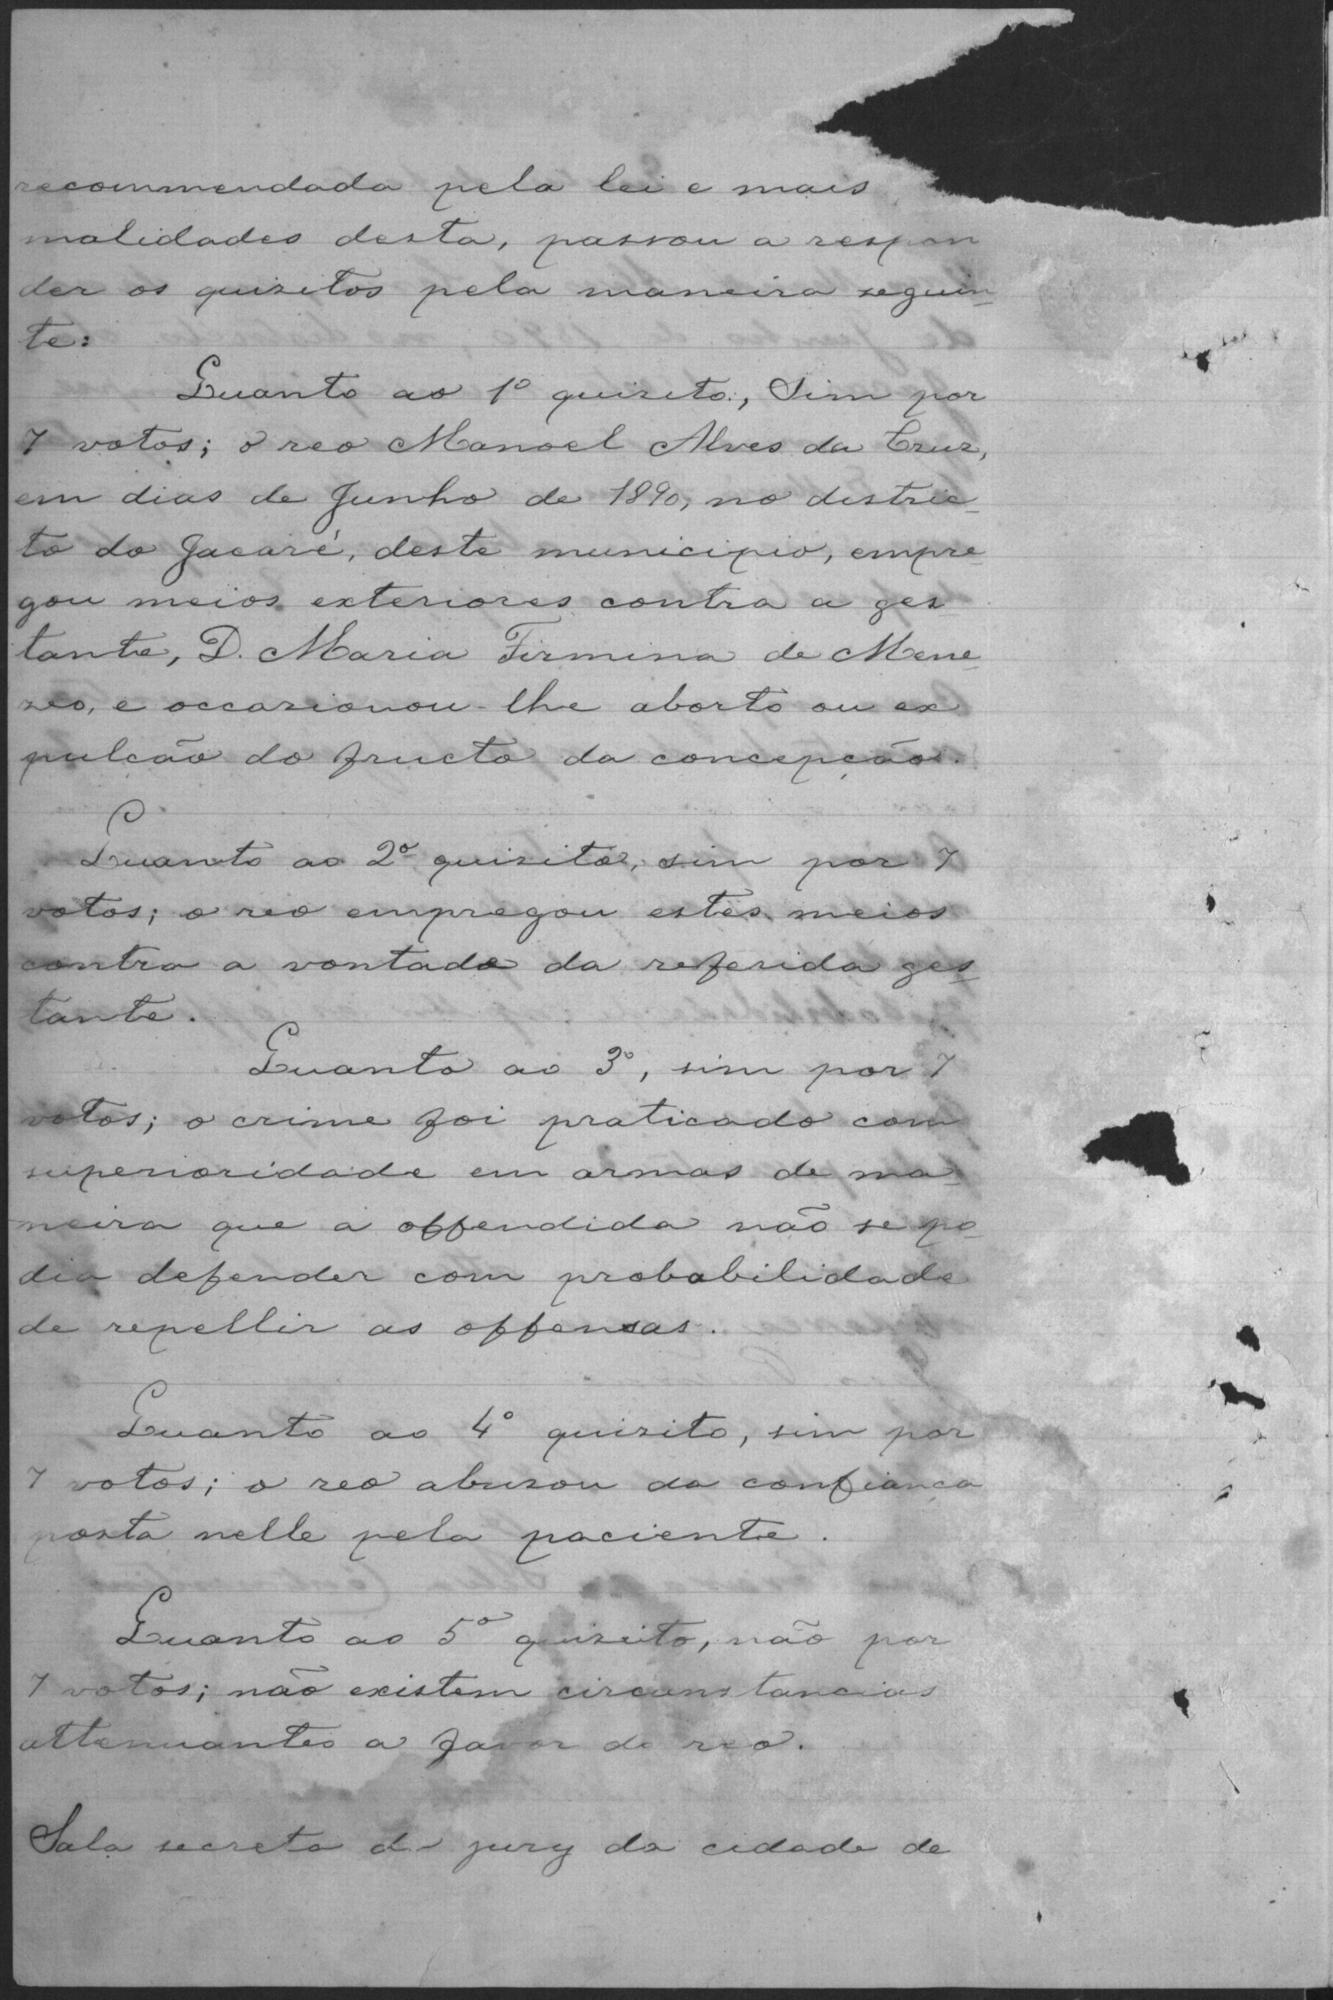 recommendada pela lei e mais
malidades desta, passou a respon
der os quisitos pela maneira seguin-
te:
Quanto ao 1º quisito, Sim por
7 votos; o reo Manoel Alves da Cruz,
em dias de Junho de 1890, no distric-
to do Jacaré, deste municipio, empre-
gou meios exteriores contra a ges-
tante, D. Maria Firmina de Mene-
zes, e occasionou-lhe aborto ou ex
pulção do fructo da concepção.
Quanto ao 2º quisito, sim por 7
votos; o reo empregou estes meios
contra a vontade da referida ges-
tante.
Quanto ao 3º, sim por 7
votos; o crime foi praticado com
superioridade em armas de ma-
neira que a offendida não se po-
dia defender com probabilidade
de repellir as offensas.
Quanto ao 4º quisito, sim por
7 votos; o reo abusou da confiança
posta nelle pela paciente.
Quanto ao 5º quisito, não por
7 votos; não existem circunstancias
attenuantes a favor do reo.
Sala secreta do jury da cidade de